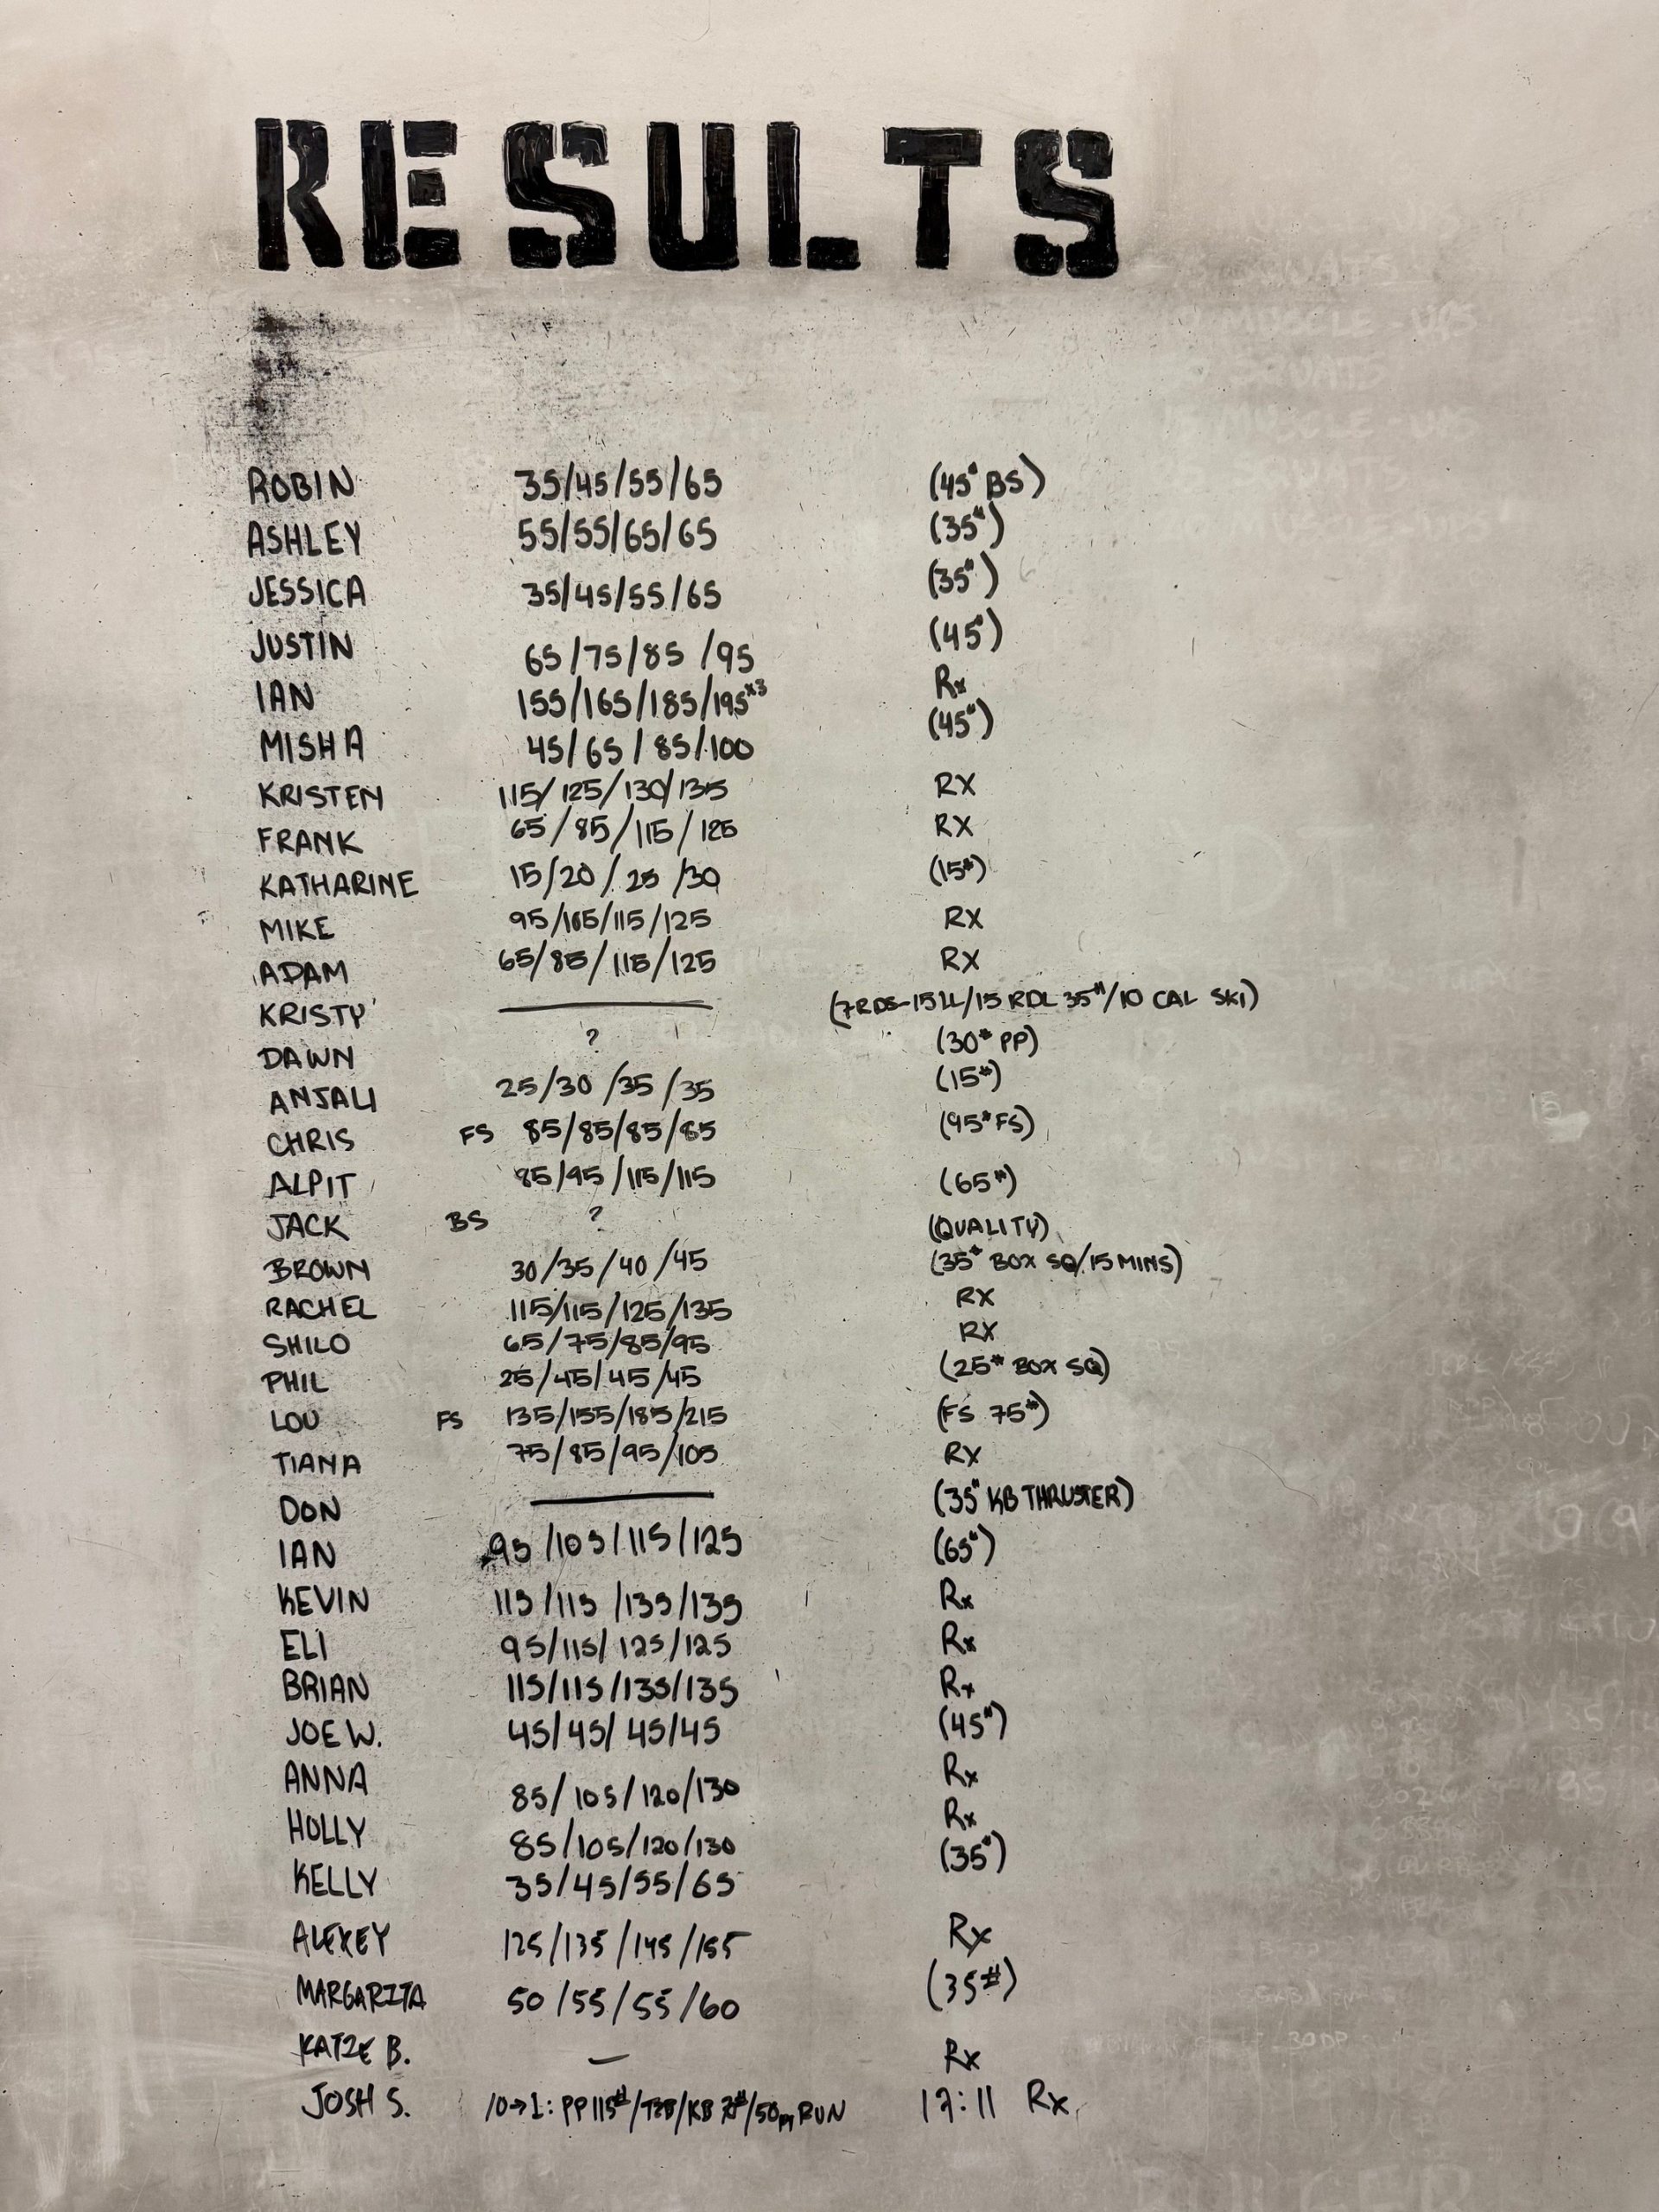 RESULTS
ROBIN 35/45/55/65 (45# BS)
ASHLEY 55/55/65/65 (35#)
JESSICA 35/45/55/65 (35#)
JUSTIN 65/75/85/95 (45#)
IAN 155/165/185/195x3 Rx
MISHA 45/65/85/100 (45#)
KRISTEN 115/125/130/135 RX
FRANK 65/85/115/125 RX
KATHARINE 15/20/25/30 (15#)
MIKE 95/105/115/125 RX
ADAM 65/85/115/125 RX
KRISTY (7RDS-15LL/15 RDL 35#/10 CAL SKI)
DAWN ? (30# PP)
ANJALI 25/30/35/35 (15#)
CHRIS FS 85/85/85/85 (95# FS)
ALPIT 85/95/115/115 (65#)
JACK BS ? (QUALITY)
BROWN 30/35/40/45 (35# BOX SQ/15 MINS)
RACHEL 115/115/125/135 RX
SHILO 65/75/85/95 RX
PHIL 25/45/45/45 (25# BOX SQ)
LOU FS 135/155/185/215 (FS 75#)
TIANA 75/85/95/105 RX
DON (35# KB THRUSTER)
IAN 95/105/115/125 (65#)
KEVIN 115/115/135/135 Rx
ELI 95/115/125/125 Rx
BRIAN 115/115/135/135 Rx
JOE W. 45/45/45/45 (45#)
ANNA 85/105/120/130 Rx
HOLLY 85/105/120/130 Rx
KELLY 35/45/55/65 (35#)
ALEXEY 125/135/145/155 Rx
MARGARITA 50/55/55/60 (35#)
KATIE B. — Rx
JOSH S. 10→1: PP 115#/T2B/KB #/50 RUN 17:11 Rx